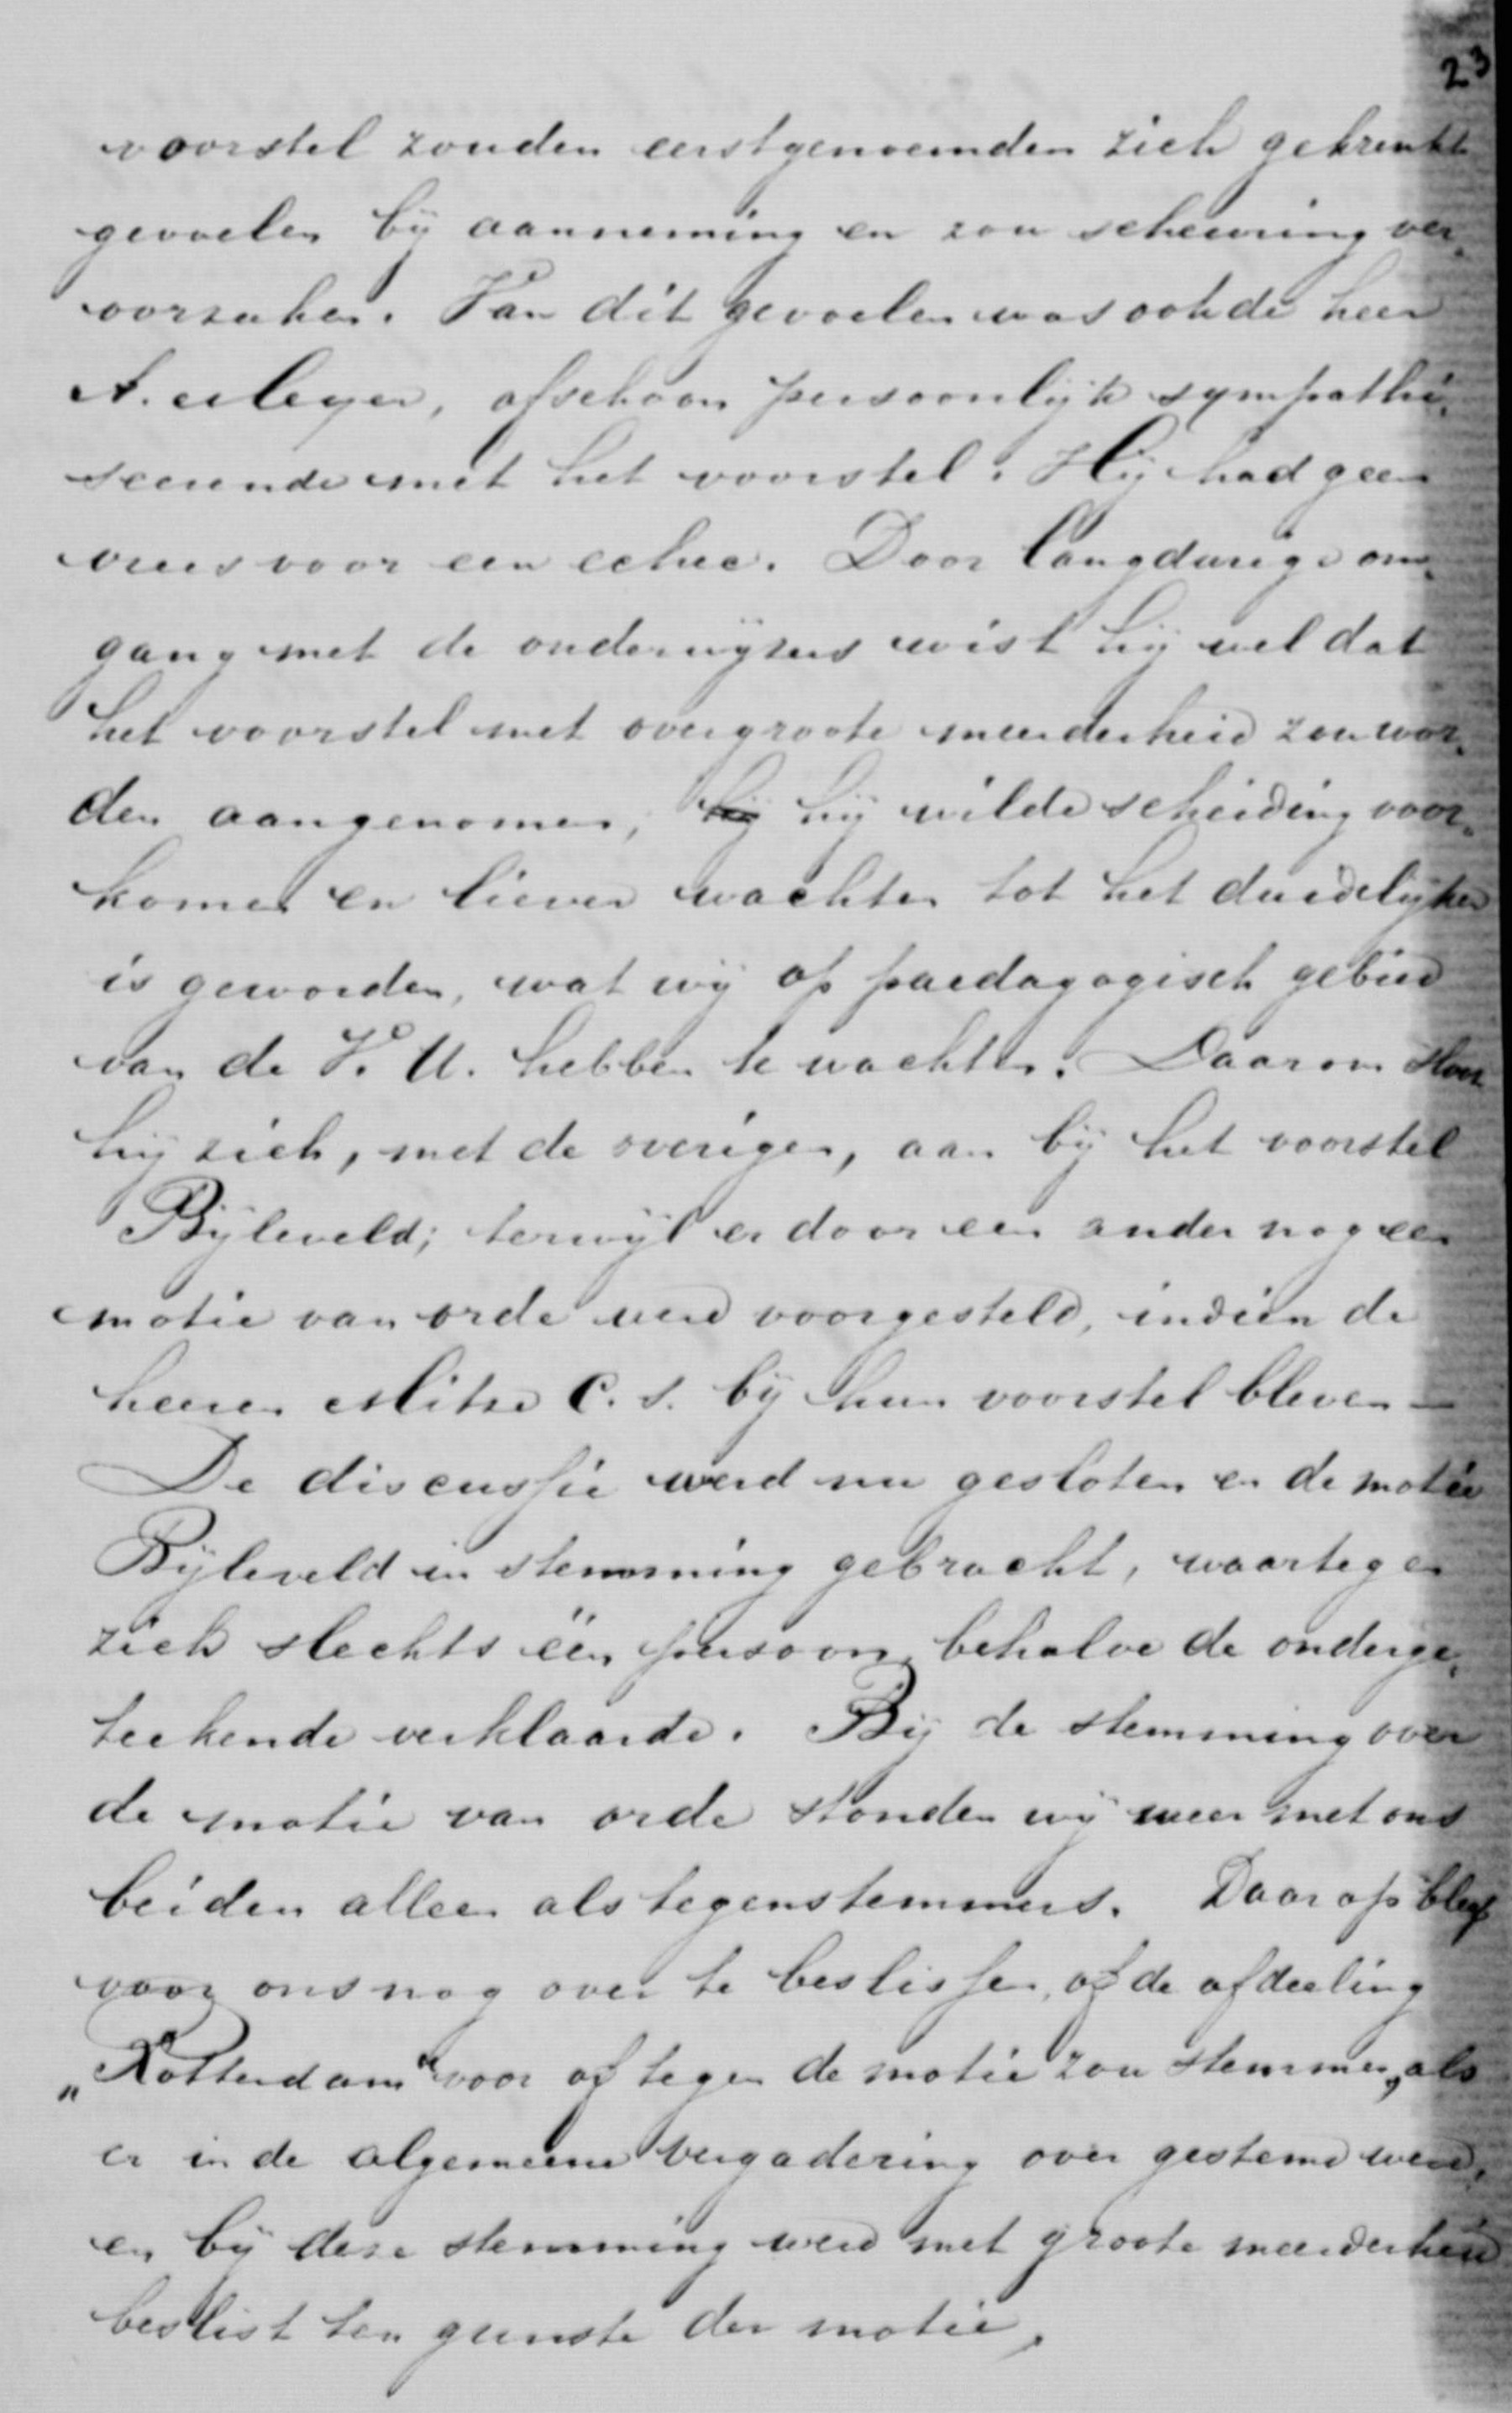 23
voorstel zouden eerstgenoemden zich gekrenkt
gevoelen bij aanneming en zou scheuring ver„
oorzaken. Van dit gevoelen was ook de heer
A. Meyer, ofschoon persoonlijk sympathi„
seerende met het voorstel. Hij had geen
vrees voor een echec. Door langdurige om„
gang met de onderwijzers wist hij wel dat
het voorstel met overgroote meerderheid zou wor„
den aangenomen, hij hij wilde scheiding voor„
komen en liever wachten tot het duidelijker
is geworden, wat wij op paedagogisch gebied
van de V. U. hebben te wachten. Daarom sloot
hij zich, met de overigen, aan bij het voorstel
Bijleveld; terwijl er door een ander nog een
motie van orde werd voorgesteld, indien de
heeren C. S. bij hun voorstel bleven —
De discussie werd nu gesloten en de motie
Bijleveld in stemming gebracht, waartegen
zich slechts één persoon behalve de onderge„
teekende verklaarde. Bij de stemming over
de motie van orde stonden wij weer met ons
beiden alleen als tegenstemmers. Daarop bleef
voor ons nog over te beslissen, of de afdeeling
„Rotterdam" voor of tegen de motie zou stemmen, als
er in de algemeene vergadering over gestemd werd,
en bij deze stemming werd met groote meerderheid
beslist ten gunste der motie.